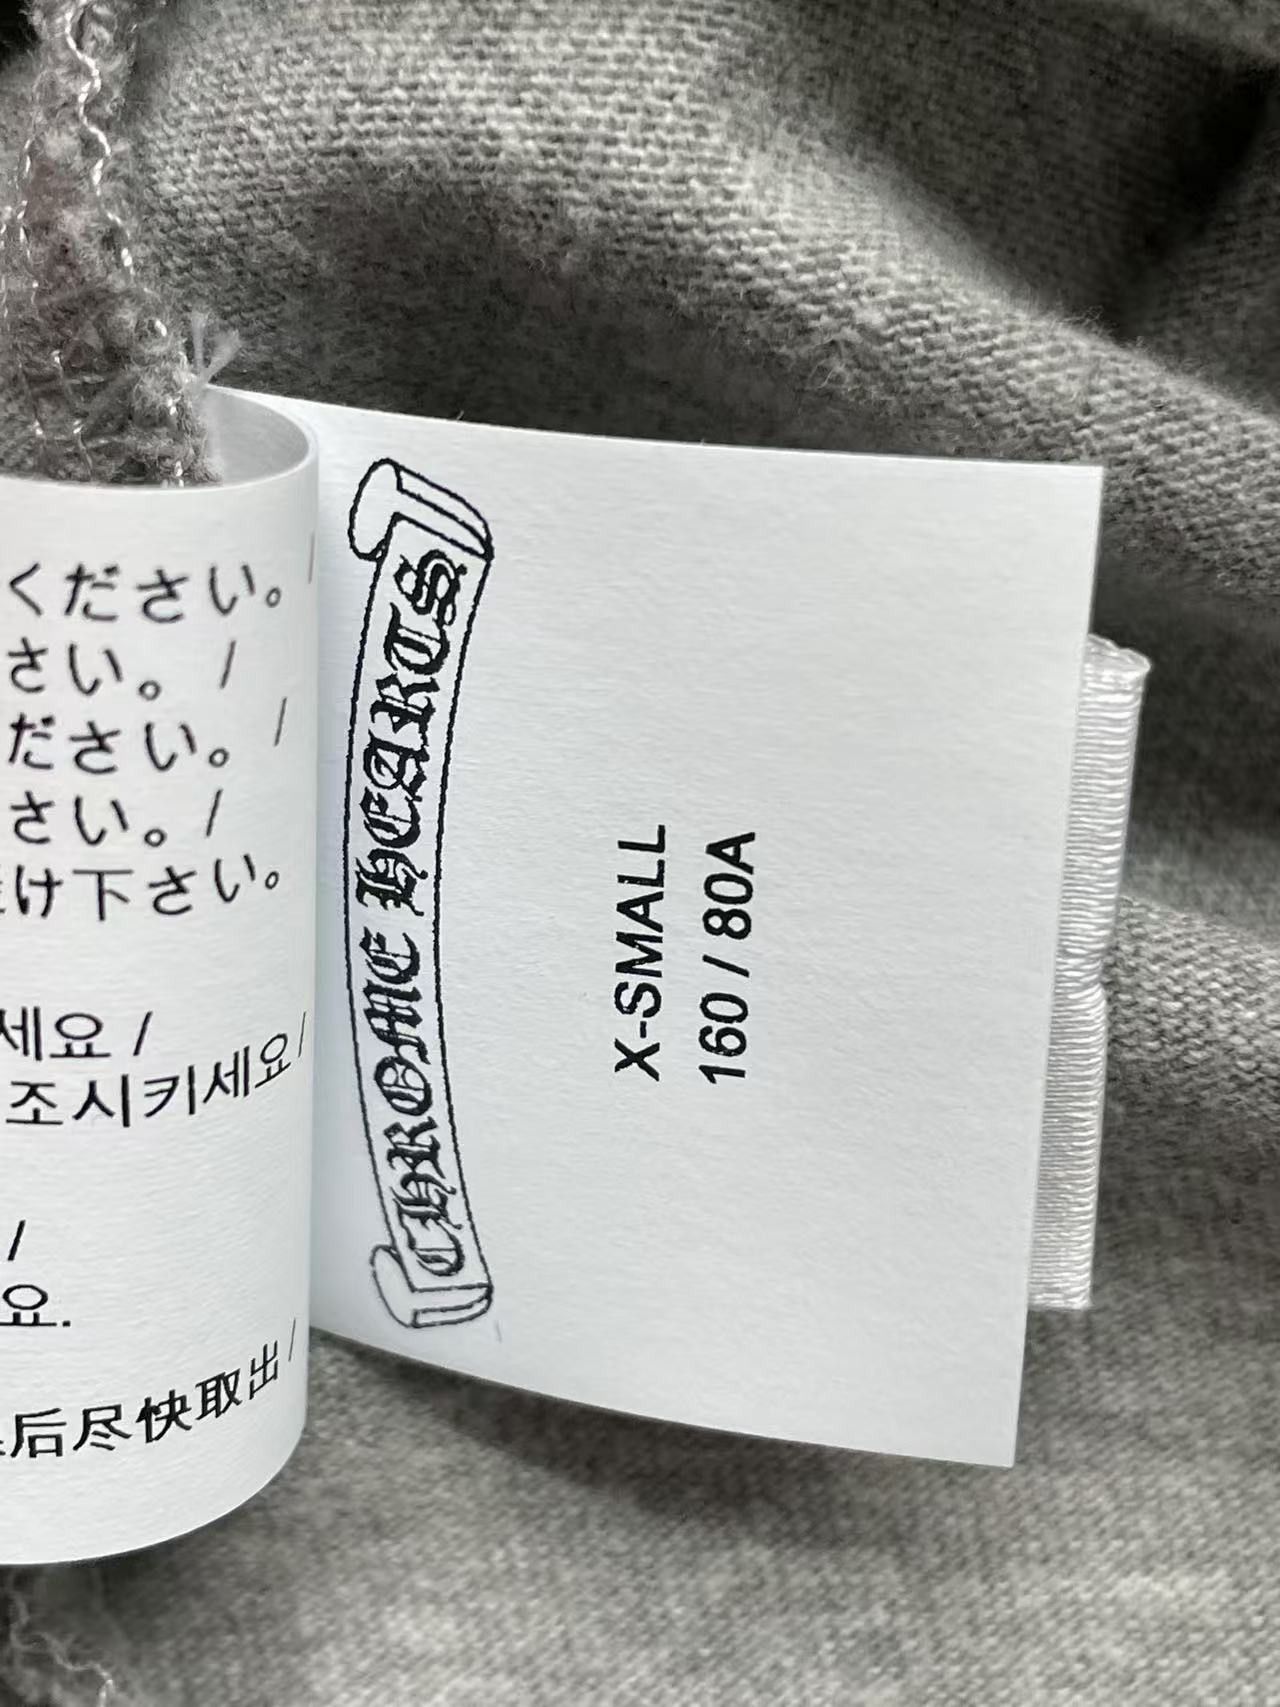 ください。/
さい。 /
ださい。/
さい。/
け下さい。
세요 /
조시키세요/
/
요.
后尽快取出/
CHROME HEARTS
X-SMALL
160 / 80A